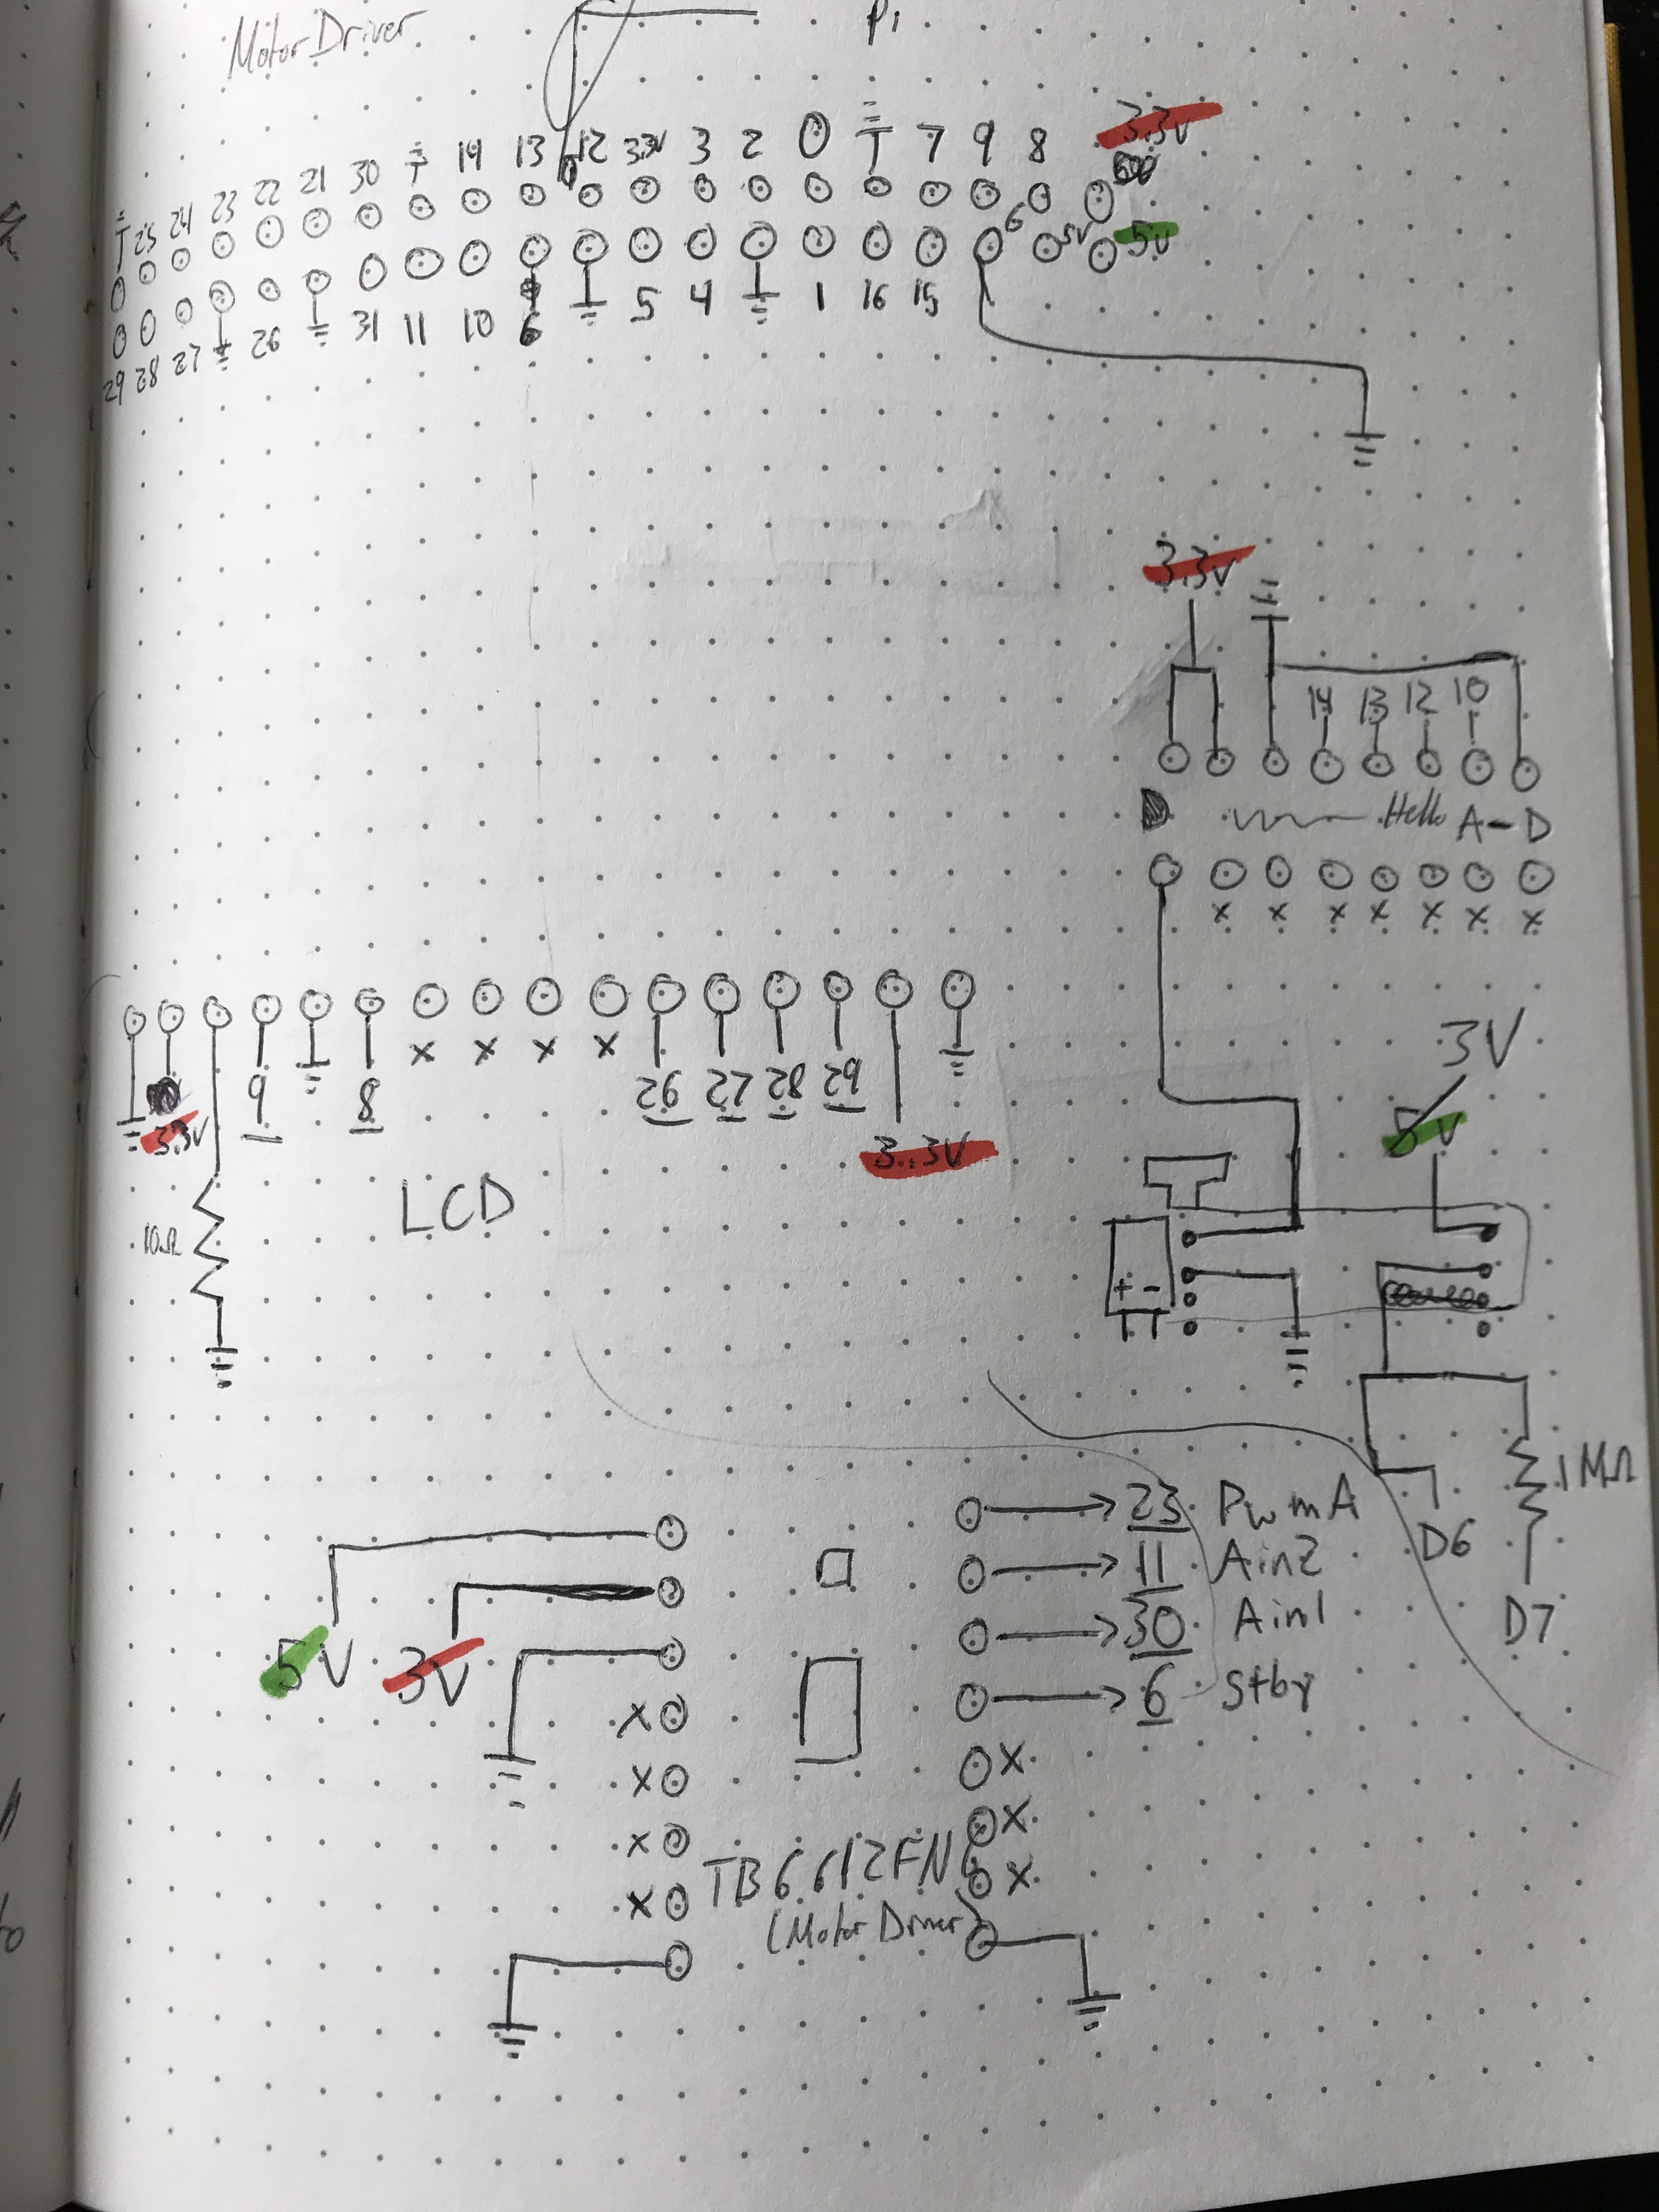 Motor Driver
Pi
25 24 23 22 21 30 14 13 12 3.3V 3 2 0 7 9 8 3.3V
6 5V 5V
29 28 27 26 31 11 10 6 5 4 1 16 15
3.3V
14 13 12 10
Hello A-D
x x x x x x x
9 8 x x x x 26 27 28 29
3.3V
3.3V
3V
5V
LCD
10Ω
+ -
1MΩ
D6
D7
23 PwmA
11 Ain2
30 Ain1
6 Stby
5V 3V
x x
x x
x x
x
TB6612FN
(Motor Driver)